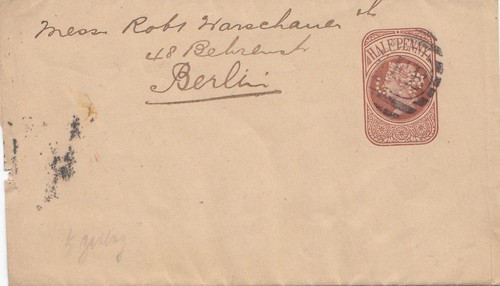 Messrs Robt Warschauer & Co
48 Behrenstr
Berlin
HALFPENNY